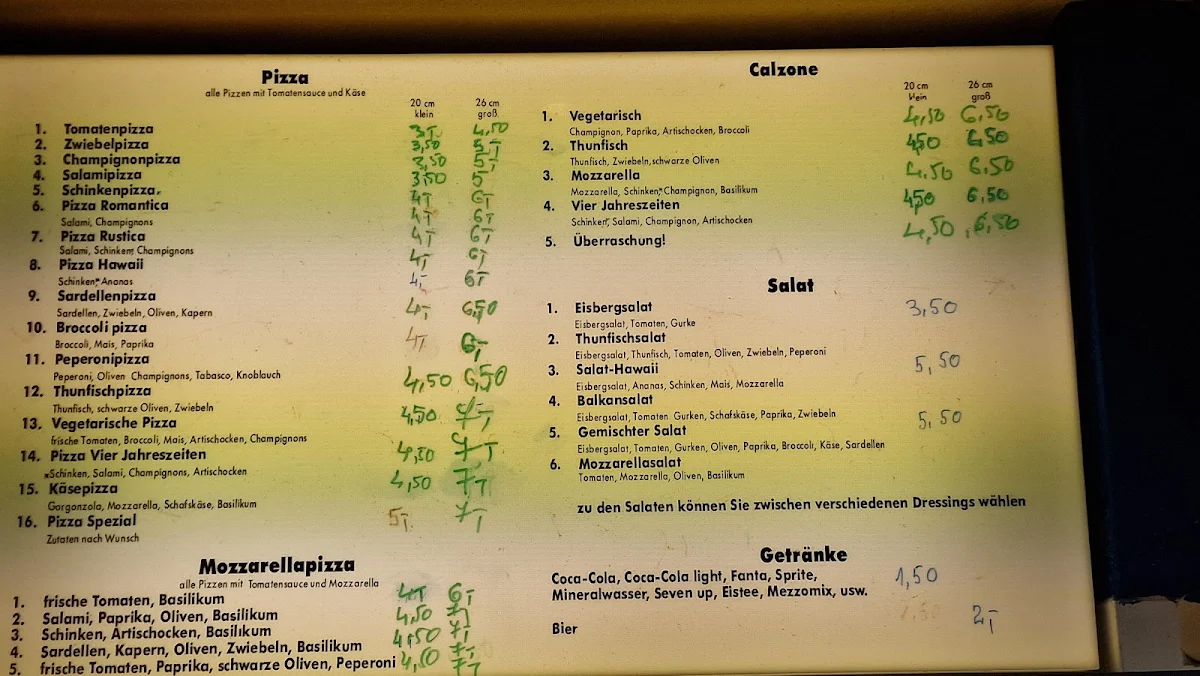 Pizza
alle Pizzen mit Tomatensauce und Käse
20 cm 26 cm
klein groß
1. Tomatenpizza 3,- 4,50
2. Zwiebelpizza 3,50 5,-
3. Champignonpizza 3,50 5,-
4. Salamipizza 3,50 5,-
5. Schinkenpizza 4,- 6,-
6. Pizza Romantica 4,- 6,-
Salami, Champignons
7. Pizza Rustica 4,- 6,-
Salami, Schinken, Champignons
8. Pizza Hawaii 4,- 6,-
Schinken, Ananas 4,- 6,-
9. Sardellenpizza
Sardellen, Zwiebeln, Oliven, Kapern 4,- 6,50
10. Broccoli pizza
Broccoli, Mais, Paprika 4,- 6,-
11. Peperonipizza
Peperoni, Oliven Champignons, Tabasco, Knoblauch 4,50 6,50
12. Thunfischpizza
Thunfisch, schwarze Oliven, Zwiebeln 4,50 7,-
13. Vegetarische Pizza
frische Tomaten, Broccoli, Mais, Artischocken, Champignons
14. Pizza Vier Jahreszeiten 4,50 7,-
Schinken, Salami, Champignons, Artischocken
15. Käsepizza 4,50 7,-
Gorgonzola, Mozzarella, Schafskäse, Basilikum
16. Pizza Spezial 5,- 7,-
Zutaten nach Wunsch
Mozzarellapizza
alle Pizzen mit Tomatensauce und Mozzarella
1. frische Tomaten, Basilikum 4,- 6,-
2. Salami, Paprika, Oliven, Basilikum 4,50 7,-
3. Schinken, Artischocken, Basilikum 4,50 7,-
4. Sardellen, Kapern, Oliven, Zwiebeln, Basilikum
5. frische Tomaten, Paprika, schwarze Oliven, Peperoni 4,50 7,-
Calzone
20 cm 26 cm
klein groß
1. Vegetarisch 4,50 6,50
Champignon, Paprika, Artischocken, Broccoli
2. Thunfisch 4,50 6,50
Thunfisch, Zwiebeln, schwarze Oliven
3. Mozzarella 4,50 6,50
Mozzarella, Schinken, Champignon, Basilikum
4. Vier Jahreszeiten 4,50 6,50
Schinken, Salami, Champignon, Artischocken
5. Überraschung! 4,50 6,50
Salat
1. Eisbergsalat 3,50
Eisbergsalat, Tomaten, Gurke
2. Thunfischsalat
Eisbergsalat, Thunfisch, Tomaten, Oliven, Zwiebeln, Peperoni
3. Salat-Hawaii 5,50
Eisbergsalat, Ananas, Schinken, Mais, Mozzarella
4. Balkansalat
Eisbergsalat, Tomaten Gurken, Schafskäse, Paprika, Zwiebeln 5,50
5. Gemischter Salat
Eisbergsalat, Tomaten, Gurken, Oliven, Paprika, Broccoli, Käse, Sardellen
6. Mozzarellasalat
Tomaten, Mozzarella, Oliven, Basilikum
zu den Salaten können Sie zwischen verschiedenen Dressings wählen
Getränke
Coca-Cola, Coca-Cola light, Fanta, Sprite, 1,50
Mineralwasser, Seven up, Eistee, Mezzomix, usw.
Bier 2,-